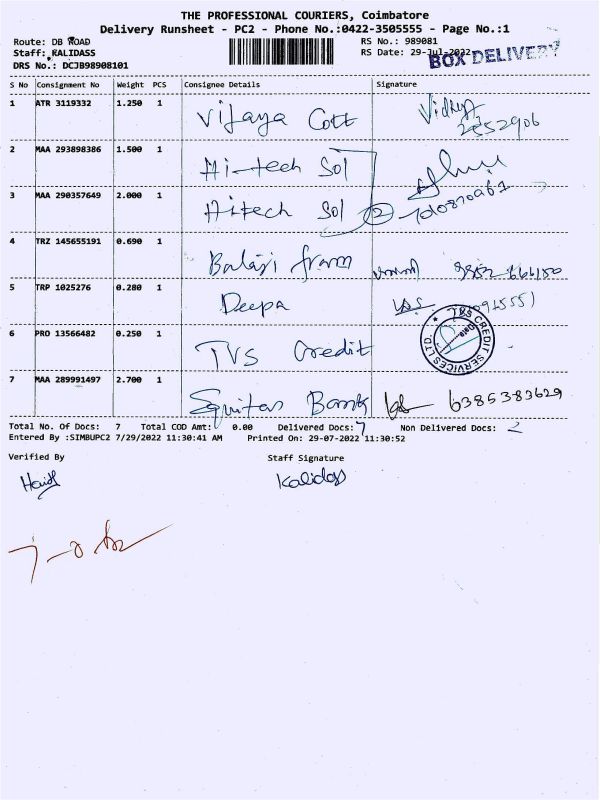 THE PROFESSIONAL COURIERS, Coimbatore
Delivery Runsheet - PC2 - Phone No.:0422-3505555 - Page No.:1
Route: DB ROAD RS No.: 989081
Staff: KALIDASS RS Date: 29-Jul-2022
BOX DELIVERY
DRS No.: DCJB98908101
S No Consignment No Weight PCS Consignee Details Signature
1 ATR 3119332 1.250 1 Vijaya Cott Vidhya
2 MAA 293898386 1.500 1 Hi-tech Sol
3 MAA 290357649 2.000 1 Hitech Sol 2
4 TRZ 145655191 0.690 1 Balaji fram
5 TRP 1025276 0.280 1 Deepa
6 PRO 13566482 0.250 1 TVS Credit TVS CREDIT SERVICES LTD.
7 MAA 289991497 2.700 1 Equitas Bank 6385383629
Total No. Of Docs: 7 Total COD Amt: 0.00 Delivered Docs: 7 Non Delivered Docs:
Entered By :SIMBUPC2 7/29/2022 11:30:41 AM Printed On: 29-07-2022 11:30:52
Verified By Staff Signature
Kalidass